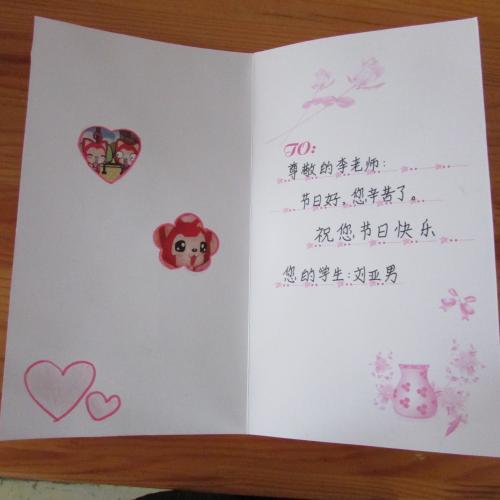 TO:
尊敬的李老师:
节日好,您辛苦了。
祝您节日快乐
您的学生:刘亚男